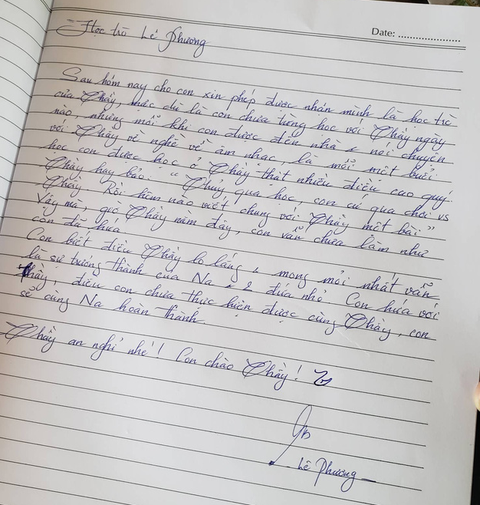 Date: ........................
Học trò Lê Phương
Sau hôm nay cho con xin phép được nhận mình là học trò
của Thầy, mặc dù là con chưa từng học với Thầy ngày
nào, nhưng mỗi khi con được đến nhà & nói chuyện
với Thầy về nghề về âm nhạc, là mỗi một buổi
học con được học ở Thầy thật nhiều điều cao quý.
Thầy hay bảo: " Thủy qua học, con cứ qua chơi vs
Thầy. Rồi hôm nào viết chung với Thầy một bài "
Vậy mà giờ Thầy nằm đây, con vẫn chưa làm như
con đã hứa
Con biết điều Thầy lo lắng & mong mỏi nhất vẫn
là sự trưởng thành của Na & 2 đứa nhỏ. Con hứa với
Thầy, điều con chưa thực hiện được cùng Thầy, con
sẽ cùng Na hoàn thành
Thầy an nghỉ nhé! Con chào Thầy!
Lê Phương